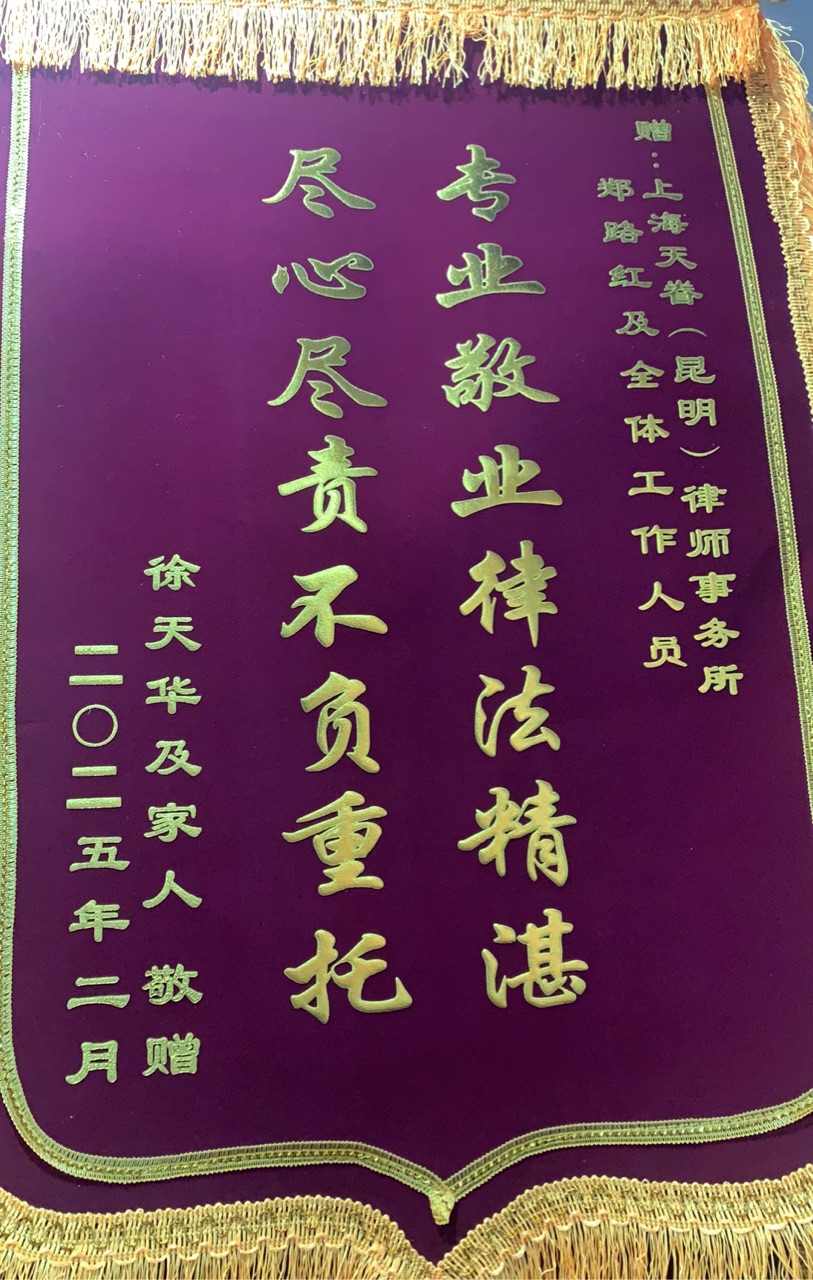 赠：上海天眷（昆明）律师事务所
郑路红及全体工作人员
专业敬业律法精湛
尽心尽责不负重托
徐天华及家人 敬赠
二〇二五年二月